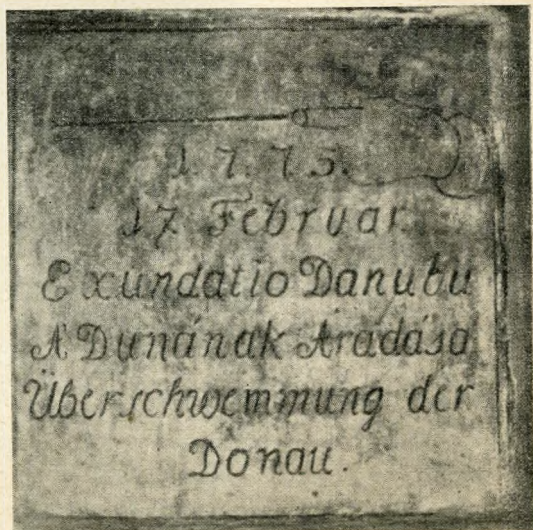 1775.
17 Februar
Exundatio Danubii
A' Dunának Áradása
Überschwemmung der
Donau.